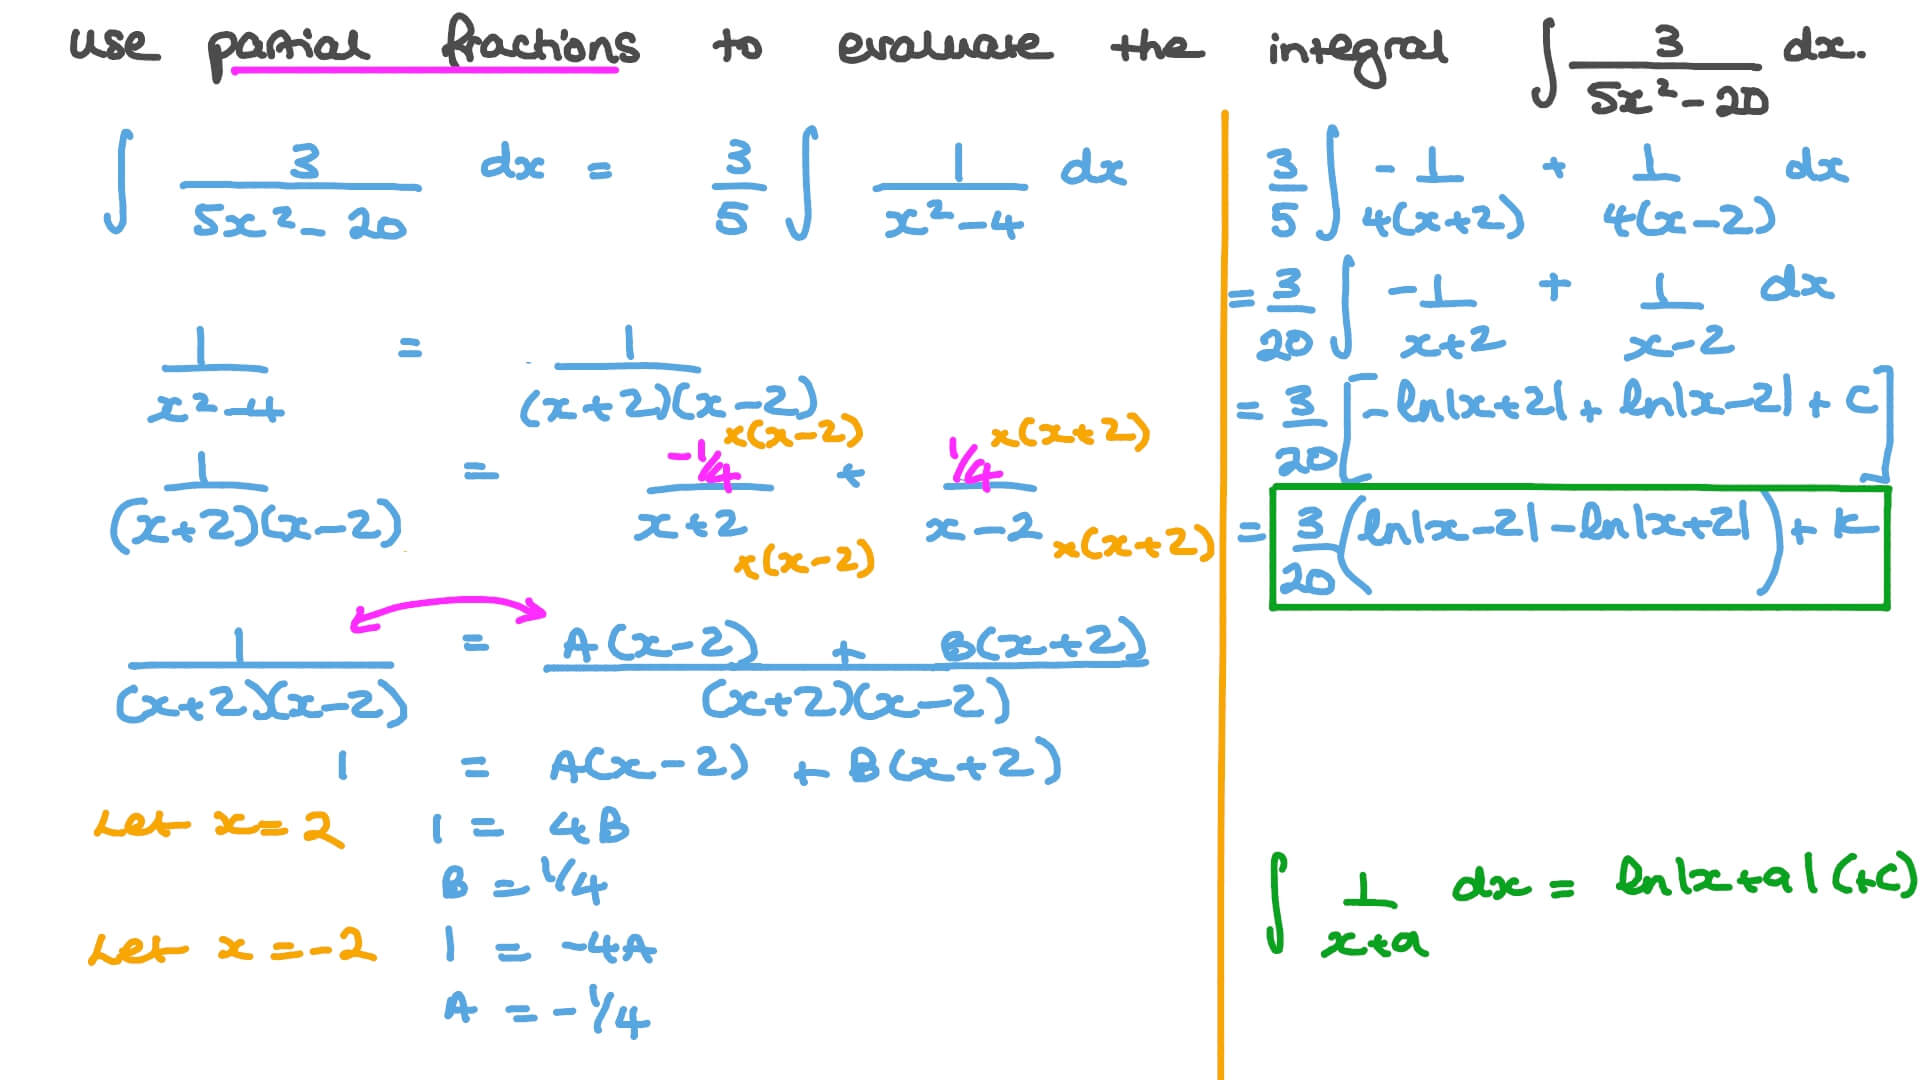 use partial fractions to evaluate the integral ∫ 3/(5x²-20) dx.
∫ 3/(5x²-20) dx = 3/5 ∫ 1/(x²-4) dx
1/(x²-4) = 1/((x+2)(x-2))
1/((x+2)(x-2)) = (-1/4)/(x+2) ×(x-2)/×(x-2) + (1/4)/(x-2) ×(x+2)/×(x+2)
1/((x+2)(x-2)) = (A(x-2) + B(x+2))/((x+2)(x-2))
1 = A(x-2) + B(x+2)
Let x=2 1 = 4B
B = 1/4
Let x=-2 1 = -4A
A = -1/4
3/5 ∫ -1/(4(x+2)) + 1/(4(x-2)) dx
= 3/20 ∫ -1/(x+2) + 1/(x-2) dx
= 3/20 [-ln|x+2| + ln|x-2| + C]
= 3/20 (ln|x-2| - ln|x+2|) + K
∫ 1/(x+a) dx = ln|x+a| (+C)